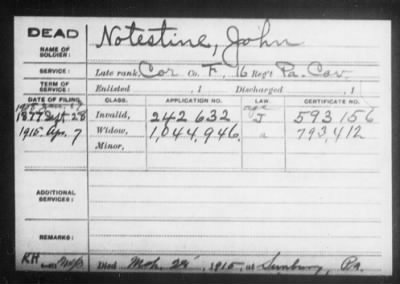 DEAD
NAME OF SOLDIER: Notestine, John
SERVICE: Late rank, Cor Co. F, 16 Reg't Pa. Cav
TERM OF SERVICE: Enlisted , 1 Discharged , 1
DATE OF FILING. CLASS. APPLICATION NO. LAW. CERTIFICATE NO.
age
1877 Sept 28 Invalid, 242 632 J 593156
1915. Apr. 7 Widow, 1,044,946 793,412
Minor,
ADDITIONAL SERVICES:
REMARKS:
RH
Died Mch. 28, 1915, at Sunbury, Pa.